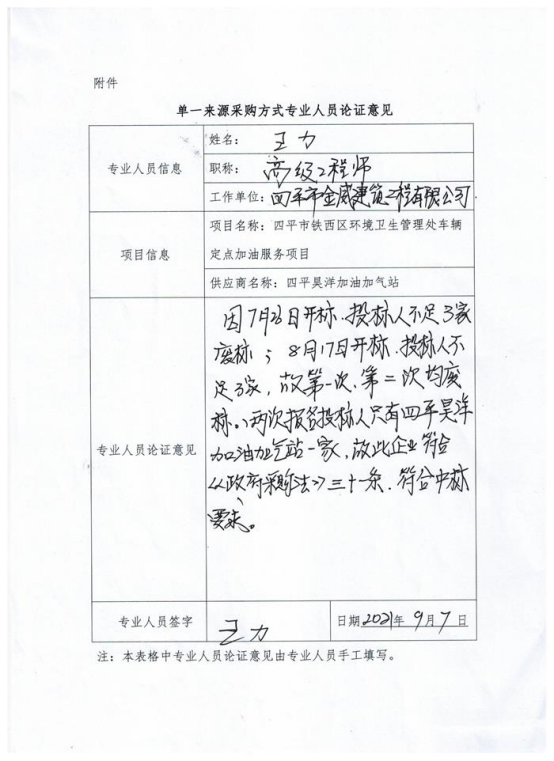 附件
单一来源采购方式专业人员论证意见
专业人员信息
姓名： 王力
职称： 高级工程师
工作单位：四平市金威建筑工程有限公司
项目信息
项目名称：四平市铁西区环境卫生管理处车辆
定点加油服务项目
供应商名称：四平昊洋加油加气站
专业人员论证意见
因7月26日开标、投标人不足3家
废标；8月17日开标、投标人不
足3家，故第一次、第二次均废
标。两次报名投标人只有四平昊洋
加油加气站一家，故此企业符合
《政府采购法》三十一条、符合中标
要求。
专业人员签字
王力
日期2021年 9月7日
注：本表格中专业人员论证意见由专业人员手工填写。